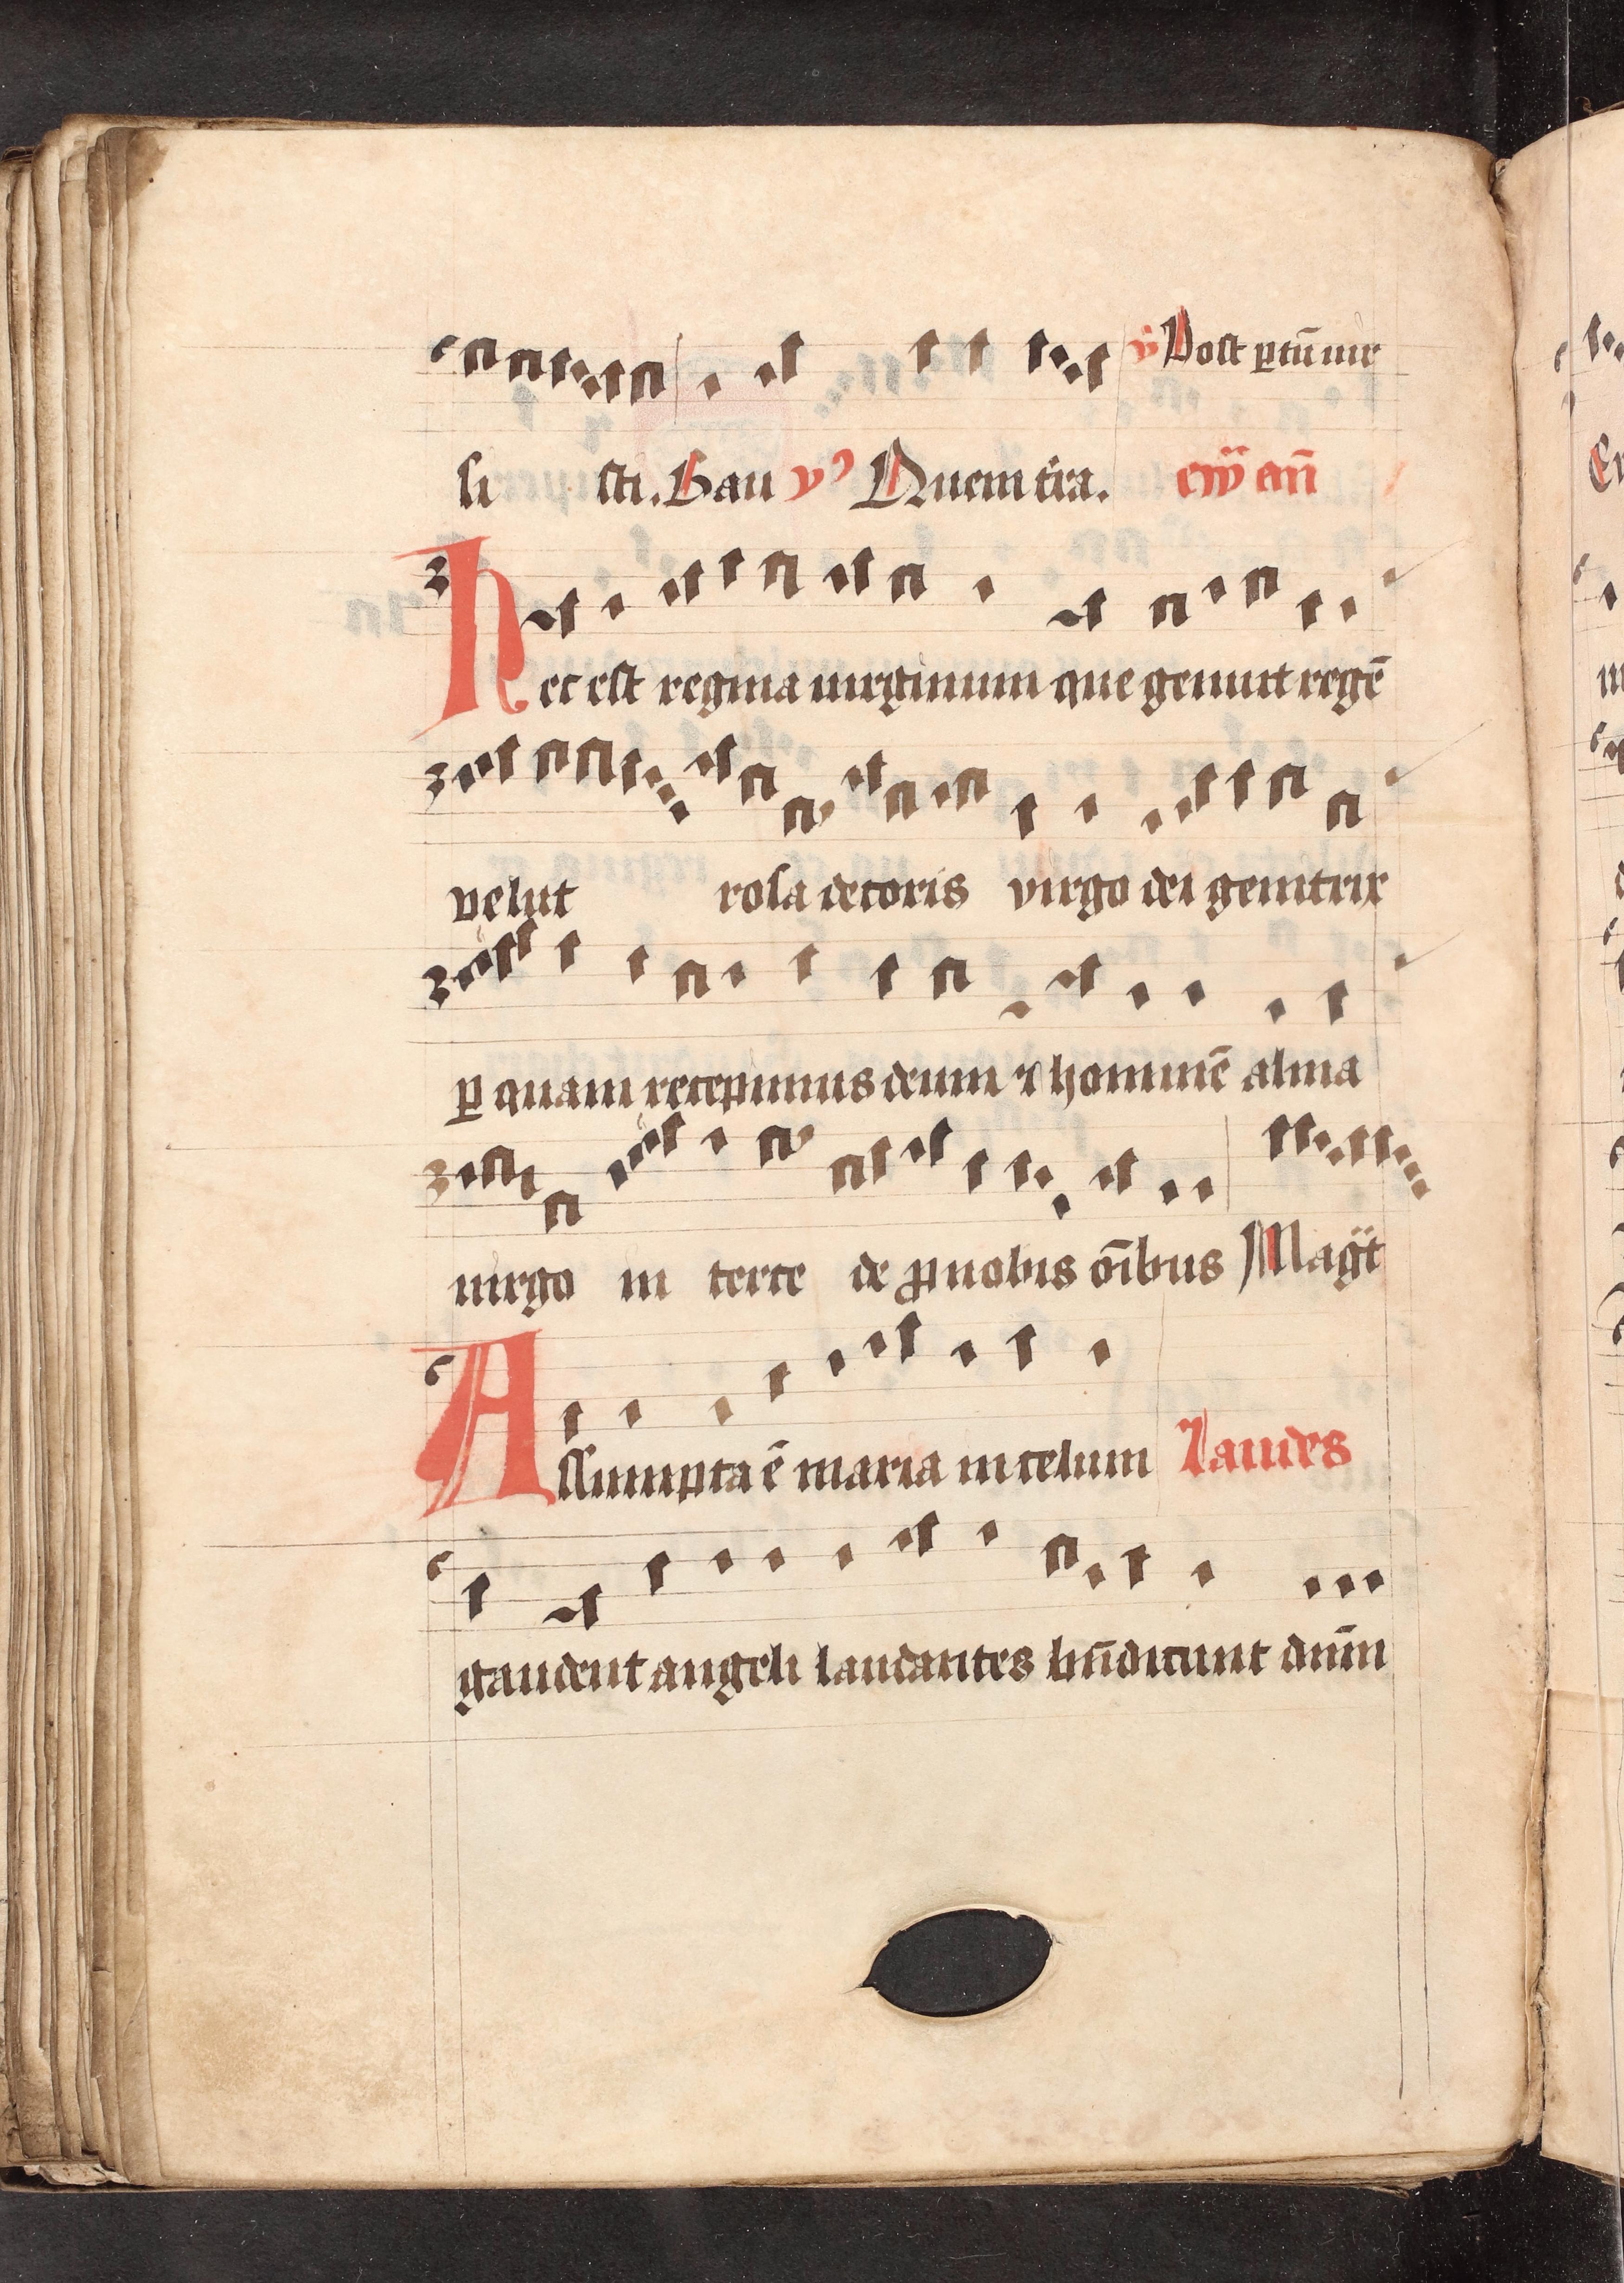 v̄ Post ꝑtū uir
si sti. Gau vꝰ Quem tr̄a. ew̄ an̄
Hec est regina uirginum que genuit regē
velut rosa decoris virgo dei genitrix
ꝑ quam recepimus deum ⁊ hominē alma
uirgo in terce de ꝓ nobis oībus Magīt
Assumpta ē maria in celum Laudes
gaudent angeli laudantes bn̄dicunt dnm̄